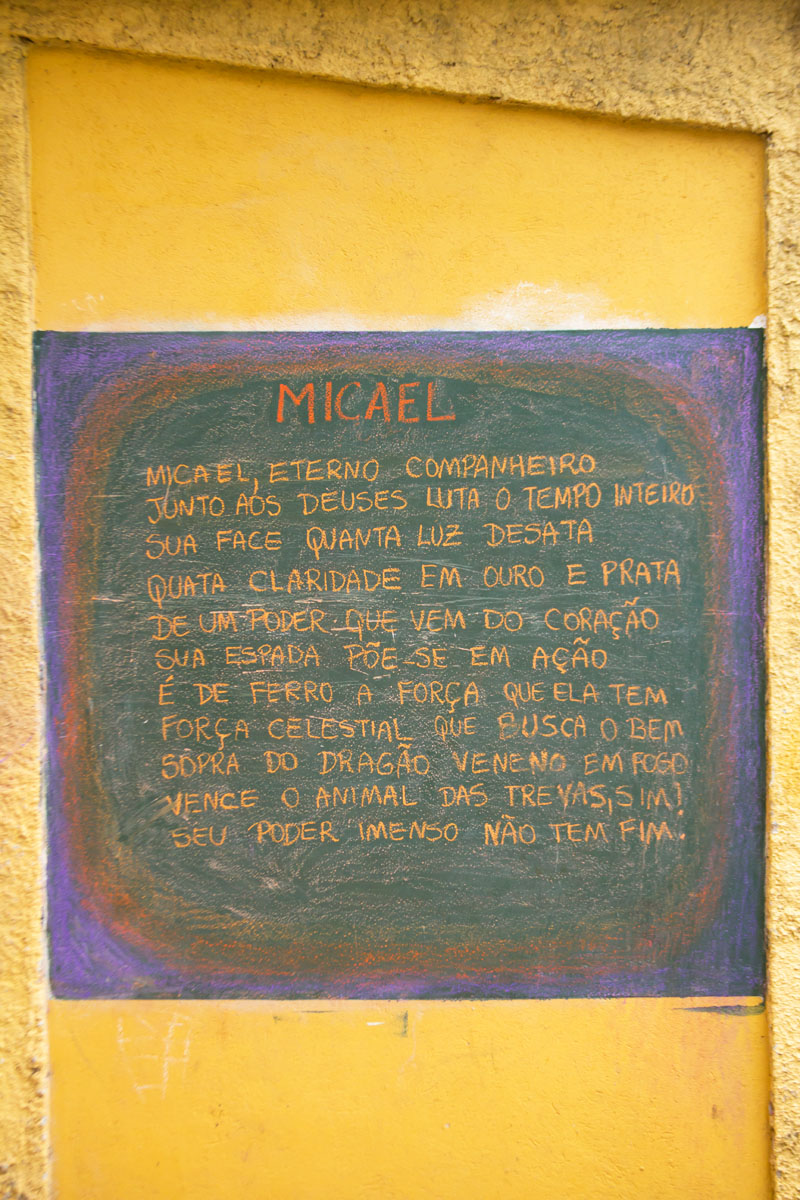 MICAEL
MICAEL, ETERNO COMPANHEIRO
JUNTO AOS DEUSES LUTA O TEMPO INTEIRO
SUA FACE QUANTA LUZ DESATA
QUATA CLARIDADE EM OURO E PRATA
DE UM PODER QUE VEM DO CORAÇÃO
SUA ESPADA PÕE-SE EM AÇÃO
É DE FERRO A FORÇA QUE ELA TEM
FORÇA CELESTIAL QUE BUSCA O BEM
SOPRA DO DRAGÃO VENENO EM FOGO
VENCE O ANIMAL DAS TREVAS, SIM!
SEU PODER IMENSO NÃO TEM FIM!